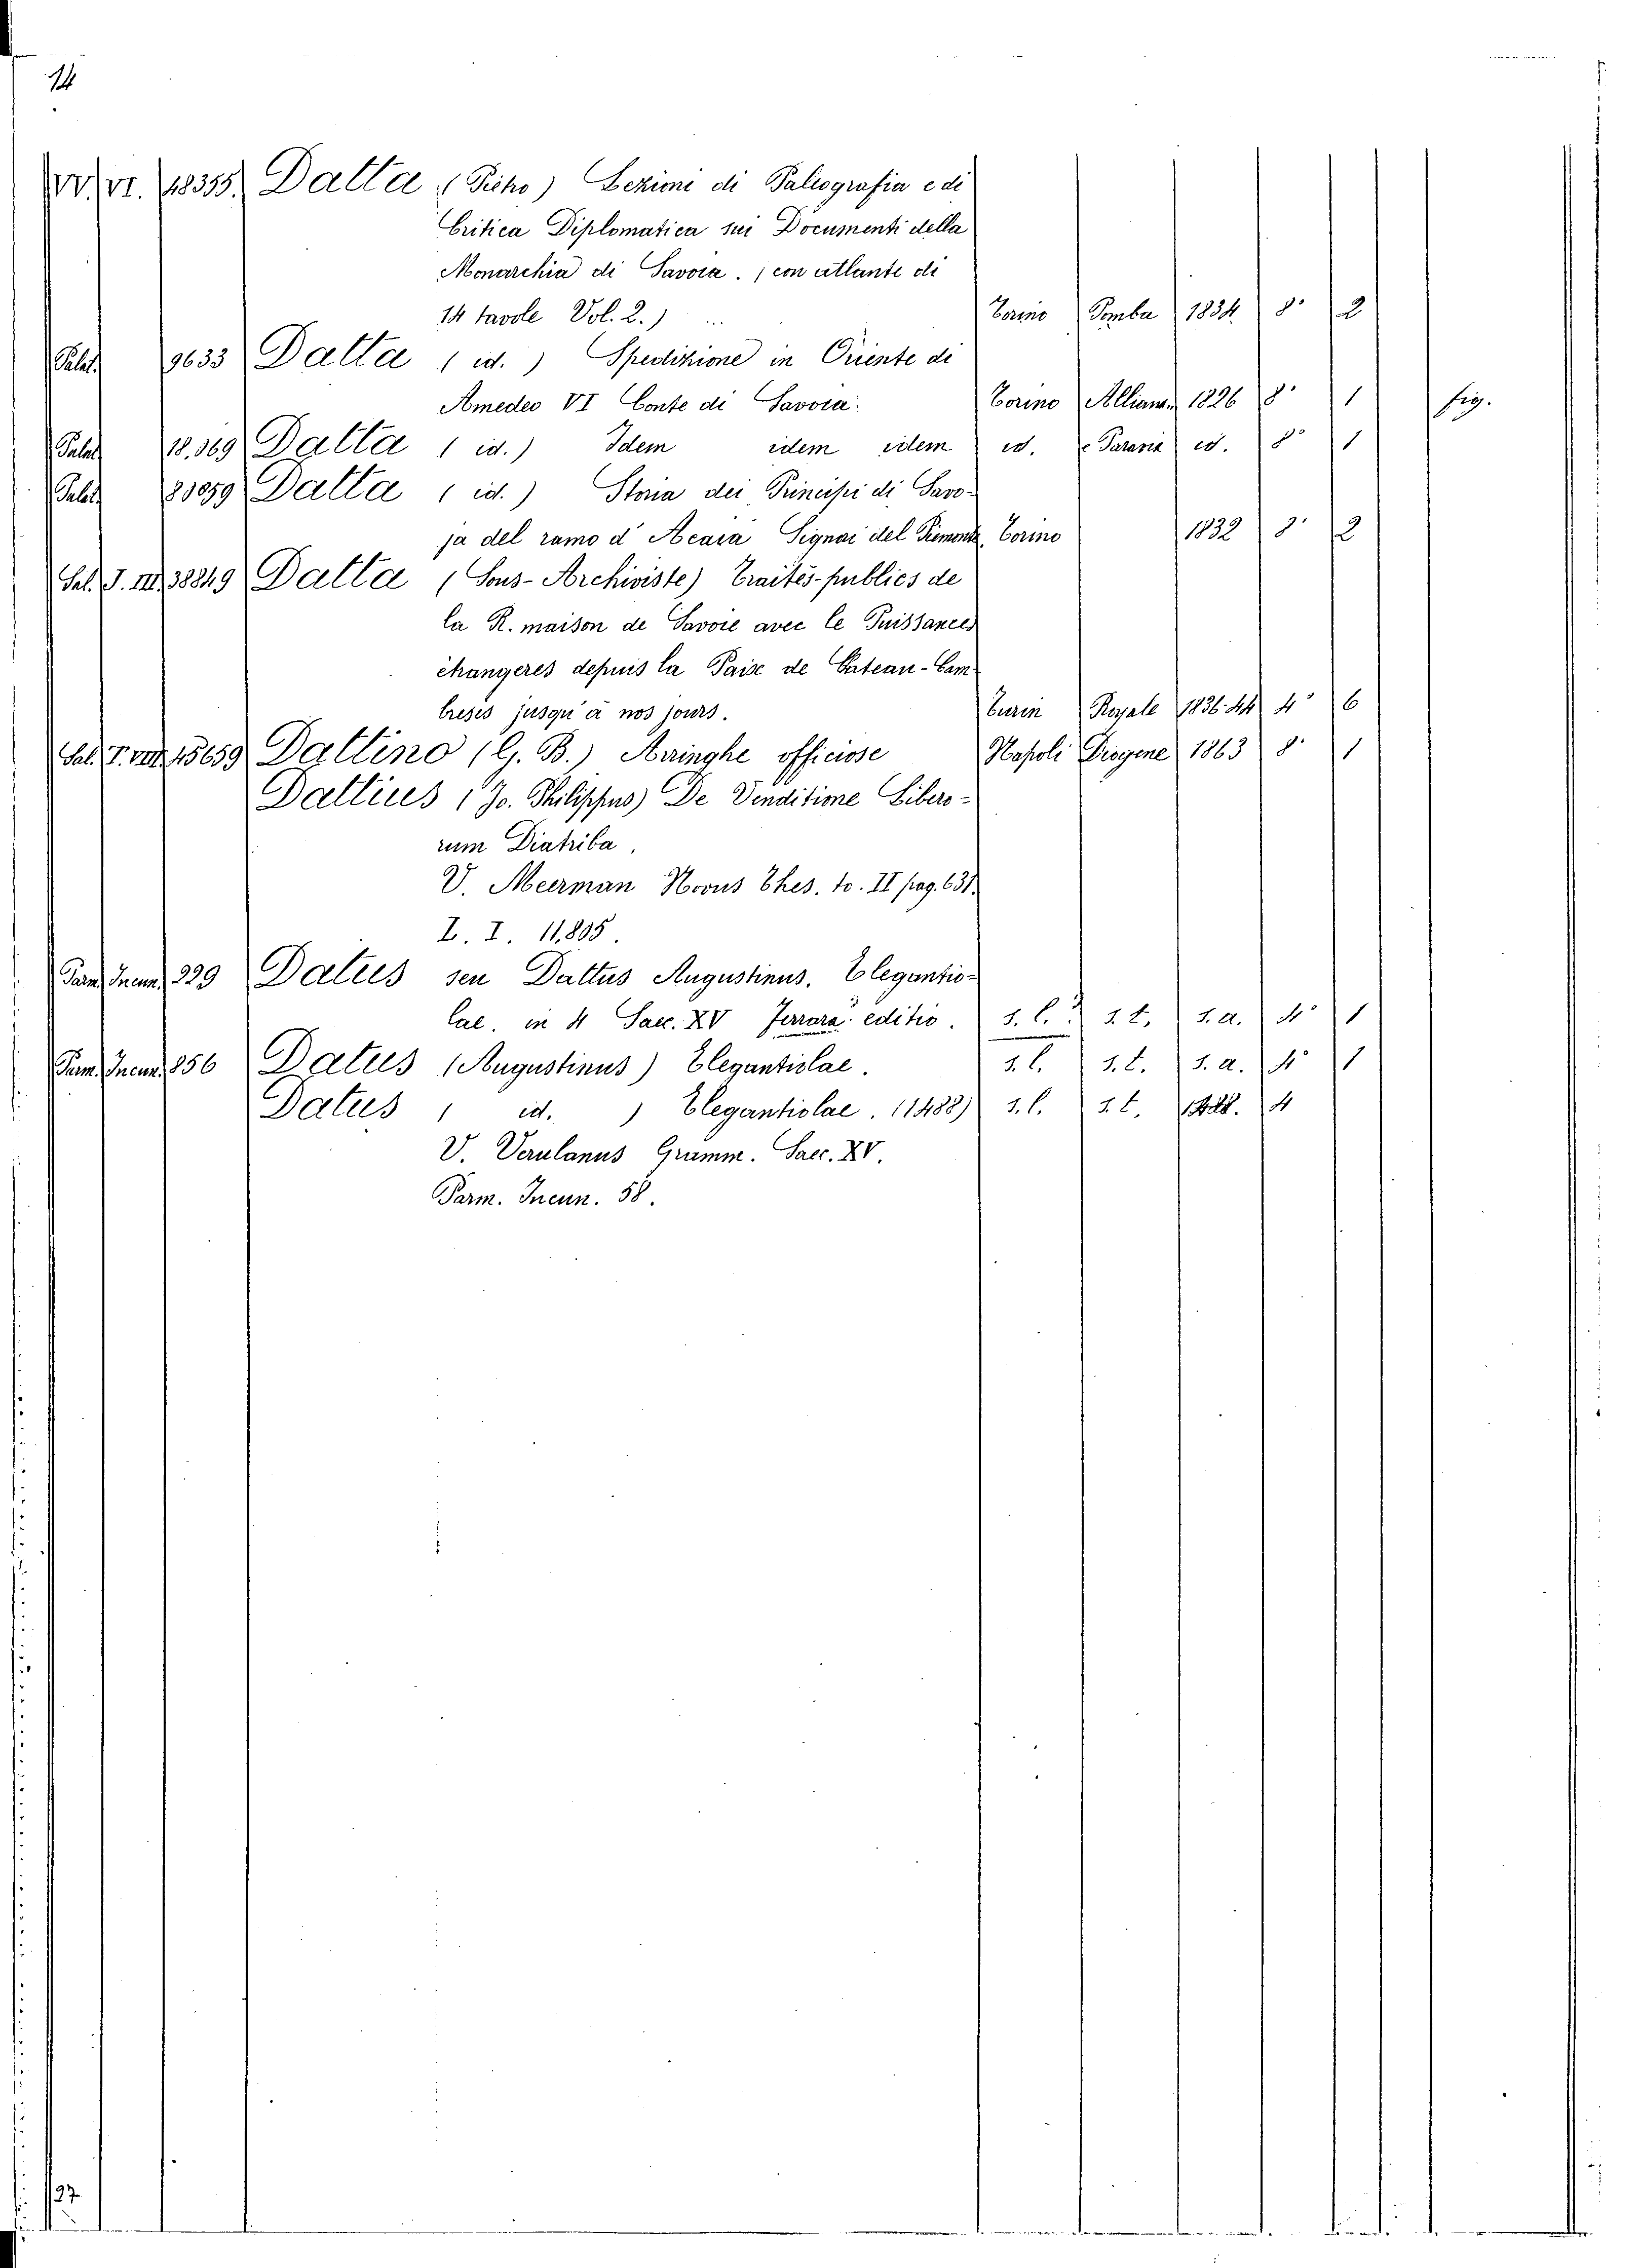 14
VV. VI. 48355. Datta (Pietro) Lezioni di Paleografia e di
Critica Diplomatica sui Documenti della
Monarchia di Savoia. (con atlante di
14 tavole Vol. 2.) Torino Pomba 1834 8° 2
Palat. 9633 Datta (id.) Spedizione in Oriente di
Amedeo VI Conte di Savoia. Torino Alliana 1826 8° 1 fig.
Palat. 18.369 Datta (id.) Idem idem idem id. e Paravia id. 8° 1
Palat. Datta (id.) Storia dei Principi di Savo-
ja del ramo d'Acaia Signori del Piemonte. Torino 1832 8° 2
Sal. T. III. 38249 Datta (Sous-Archiviste) Traités-publics de
la R. maison de Savoie avec le Puissances
étrangeres depuis la Paise de Cateau-Cam-
bresis jusqu'à nos jours. Turin Royale 1836.44 4° 6
Sal. T. VIII. 15659 Dattino (G. B.) Aringhe officiose Napoli Diogene 1863 8° 1
Dattius (Jo. Philippus) De Venditione Libero-
rum Diatriba.
V. Meerman Novus Thes. to. II pag. 631.
Z. I. 11,805.
Parm. Incun. 229 Datus seu Dattus Augustinus. Elegantio-
lae. in 4 Saec. XV Ferrara editio. s. l. s. t. s. a. 4° 1
Parm. Incun. 856 Datus (Augustinus) Elegantiolae. s. l. s. t. s. a. 4° 1
Datus (id.) Elegantiolae. (1488) s. l. s. t. 1488. 4
V. Verulanus Gramm. Saec. XV.
Parm. Incun. 58.
127